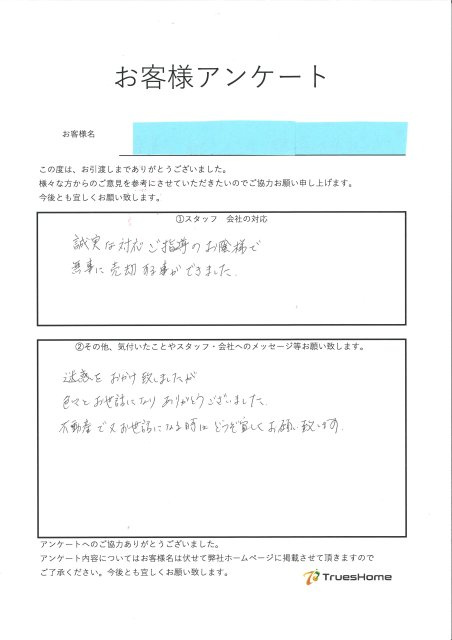 お客様アンケート
お客様名
この度は、お引渡しまでありがとうございました。
様々な方からのご意見を参考にさせていただきたいのでご協力お願い申し上げます。
今後とも宜しくお願い致します。
①スタッフ 会社の対応
誠実な対応ご指導のお陰様で
無事に売却する事ができました。
②その他、気付いたことやスタッフ・会社へのメッセージ等お願い致します。
迷惑をおかけ致しましたが
色々とお世話になりありがとうございました。
不動産で又お世話になる時はどうぞ宜しくお願い致します。
アンケートへのご協力ありがとうございました。
アンケート内容についてはお客様名は伏せて弊社ホームページに掲載させて頂きますので
ご了承ください。今後とも宜しくお願い致します。
TruesHome